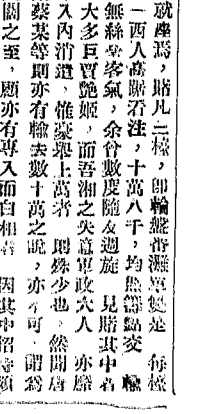 就座焉，賭凡二檯，即輪盤番灘單雙是　每檯
一西人高踞看注，十萬八千，均無須點交　輸
無絲毫客氣，余曾數度隨友週旋　見賭其中者
大多巨賈艷姬，而吾湘之失意軍政大人　亦
入內消遣，惟豪舉上萬者　則殊少也，然聞唐
蔡某等則亦有輸去數十萬之說，亦不可
闊之至，顧亦有專人而自相　因其中招待